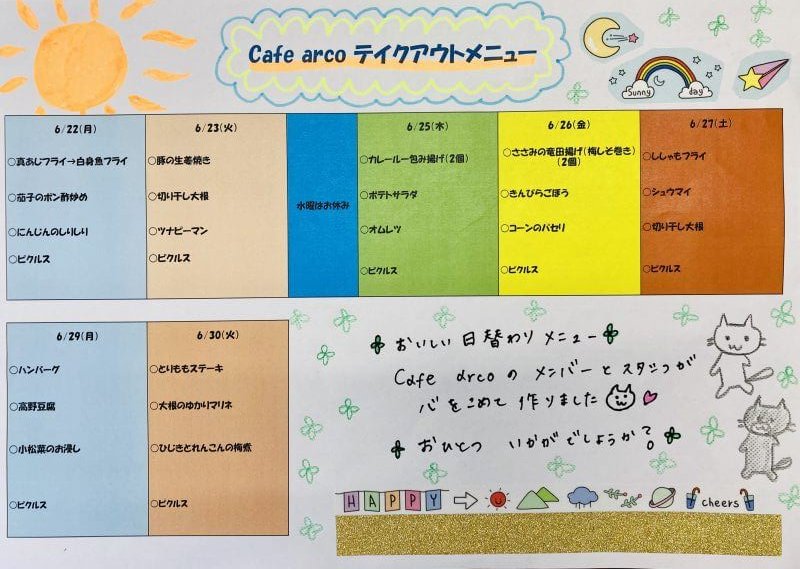 Cafe arco テイクアウトメニュー
Sunny day
6/22(月)
○真あじフライ→白身魚フライ
○茄子のポン酢炒め
○にんじんのしりしり
○ピクルス
6/23(火)
○豚の生姜焼き
○切り干し大根
○ツナピーマン
○ピクルス
水曜はお休み
6/25(木)
○カレールー包み揚げ(2個)
○ポテトサラダ
○オムレツ
○ピクルス
6/26(金)
○ささみの竜田揚げ(梅しそ巻き)
(2個)
○きんぴらごぼう
○コーンのパセリ
○ピクルス
6/27(土)
○ししゃもフライ
○シュウマイ
○切り干し大根
○ピクルス
6/29(月)
○ハンバーグ
○高野豆腐
○小松菜のお浸し
○ピクルス
6/30(火)
○とりももステーキ
○大根のゆかりマリネ
○ひじきとれんこんの梅煮
○ピクルス
おいしい日替わりメニュー
Cafe arcoのメンバーとスタッフが
心をこめて作りました
おひとついかがでしょうか?
HAPPY
cheers